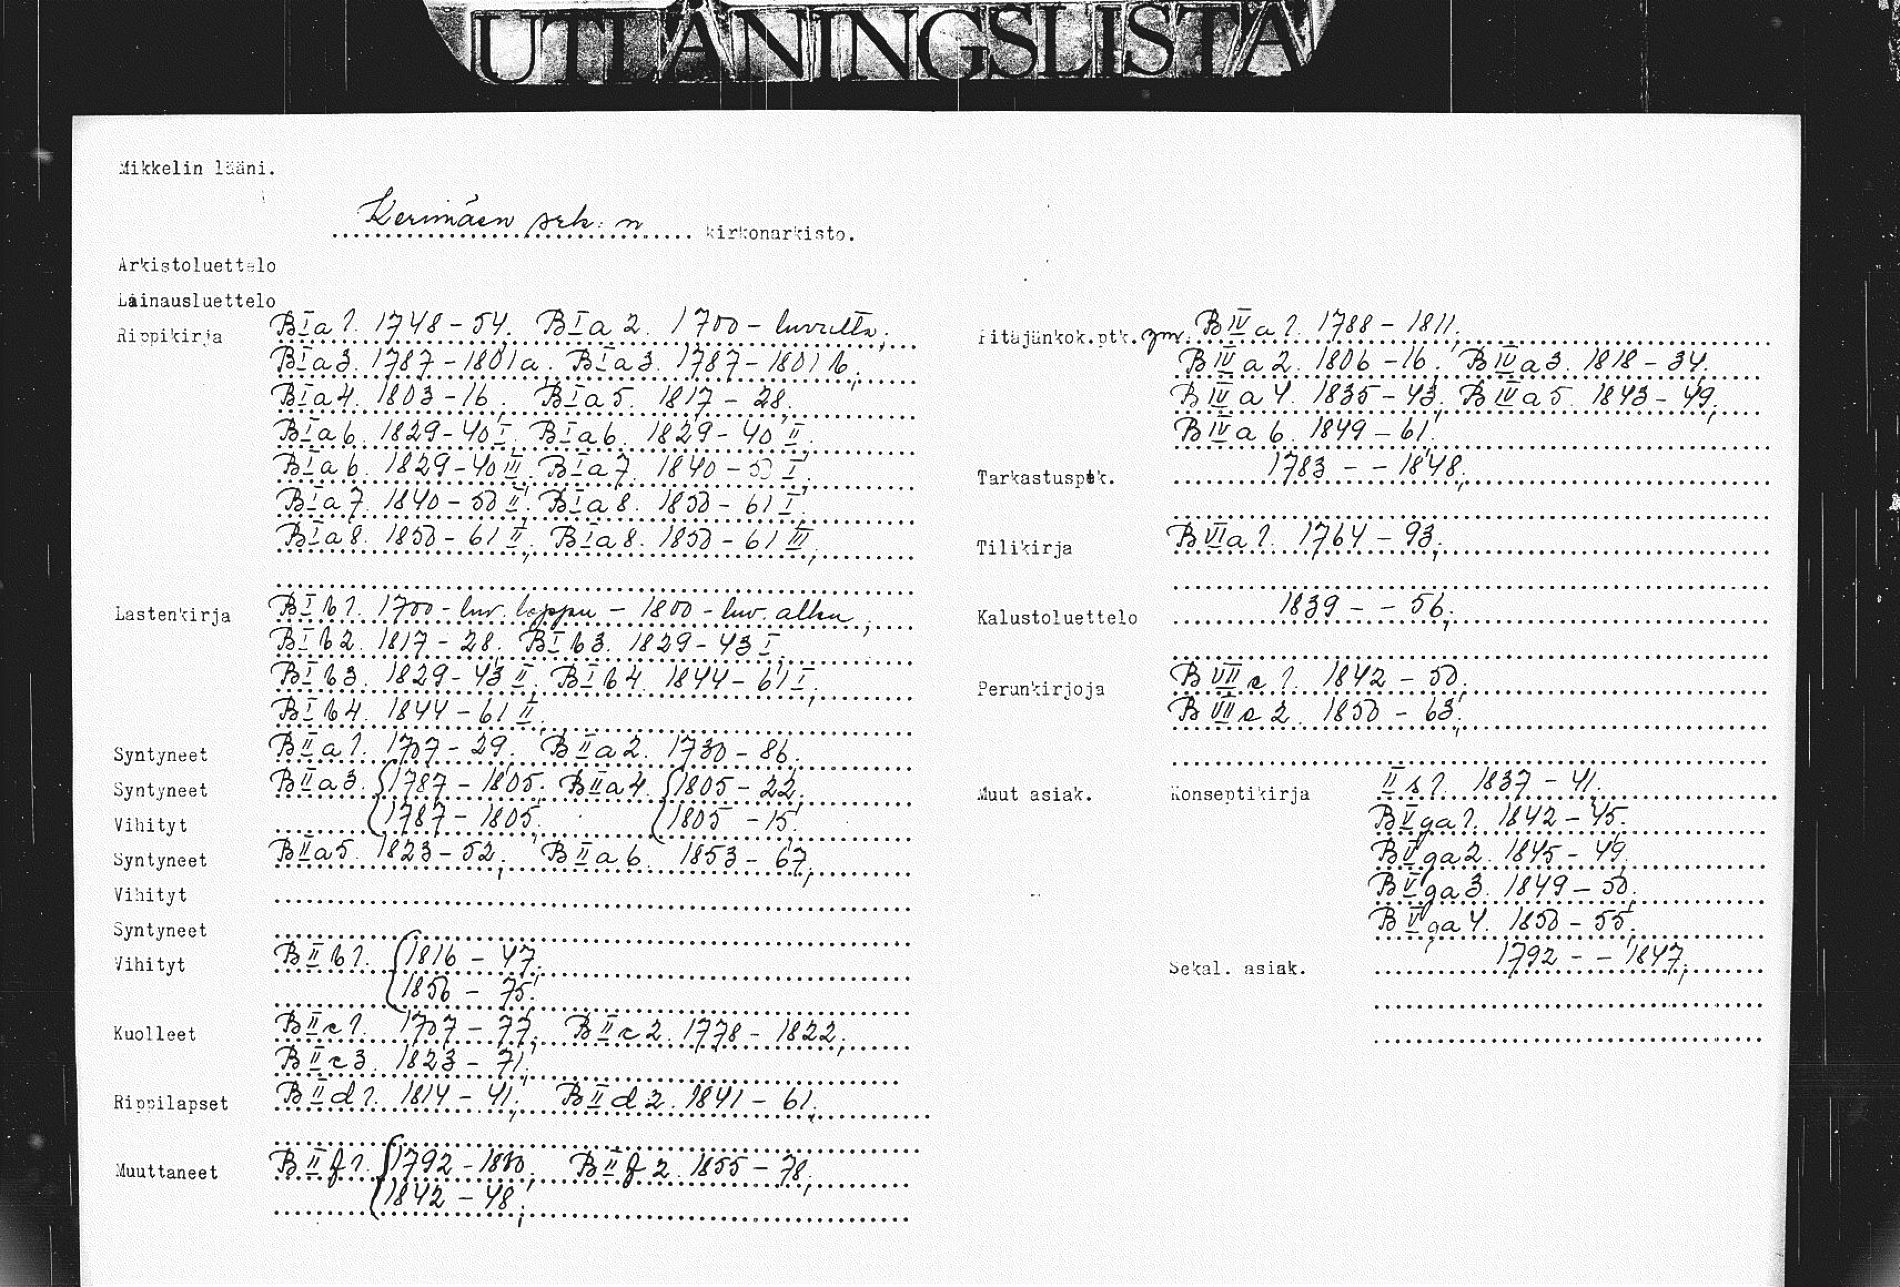 UTLÅNINGSLISTA
Mikkelin lääni.
Kerimäen srk:n kirkonarkisto.
Arkistoluettelo
Lainausluettelo
Rippikirja BIa1. 1748-54. BIa2. 1700-luvulta;
BIa3. 1787-1801a. BIa3. 1787-1801b;
BIa4. 1803-16. BIa5. 1817-28.
BIa6. 1829-40 I. BIa6. 1829-40 II;
BIa6. 1829-40 III. BIa7. 1840-50 I;
BIa7. 1840-50 II. BIa8. 1850-61 I;
BIa8. 1850-61 II; BIa8. 1850-61 III;
Lastenkirja BIb1. 1700-luv. loppu - 1800-luv. alku;
BIb2. 1817-28. BIb3. 1829-43 I.
BIb3. 1829-43 II; BIb4. 1844-61 I;
BIb4. 1844-61 II;
Syntyneet BIIa1. 1707-29. BIIa2. 1730-86.
Syntyneet BIIa3. 1787-1805. BIIa4. 1805-22.
Vihityt 1787-1805; 1805-15;
Syntyneet BIIa5. 1823-52; BIIa6. 1853-67;
Vihityt
Syntyneet
Vihityt BIIb1. 1816-47;
1856-75;
Kuolleet BIIc1. 1707-77; BIIc2. 1778-1822;
BIIc3. 1823-71;
Rippilapset BIId1. 1814-41; BIId2. 1841-61;
Muuttaneet BIIf1. 1792-1800; BIIf2. 1855-78;
1842-48;
Pitäjänkok.ptk. ym. BIVa1. 1788-1811;
BIVa2. 1806-16. BIVa3. 1818-34.
BIVa4. 1835-43; BIVa5. 1843-49;
BIVa6. 1849-61;
Tarkastusptk. 1783 - - 1848;
Tilikirja BVIa1. 1764-93;
Kalustoluettelo 1839 - - 56;
Perunkirjoja BVIIc1. 1842-50;
BVIIc2. 1850-63;
Muut asiak. Konseptikirja IIs1. 1837-41.
BVga1. 1842-45.
BVga2. 1845-49.
BVga3. 1849-50.
BVga4. 1850-55.
Sekal. asiak. 1792 - - 1847;